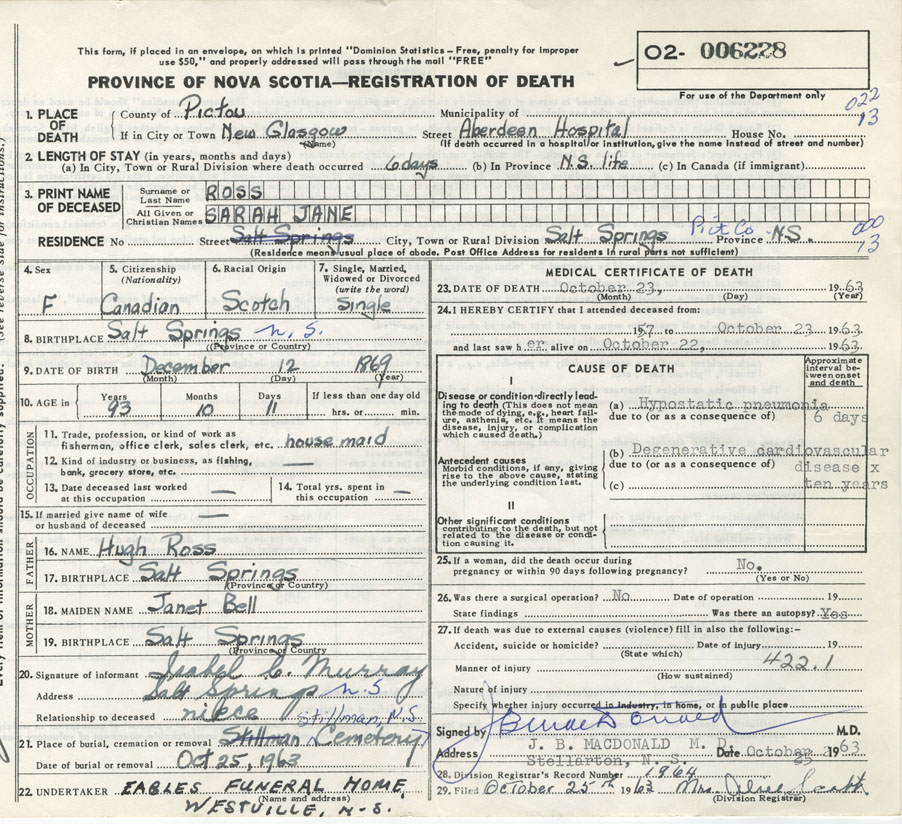 This form, if placed in an envelope, on which is printed "Dominion Statistics – Free, penalty for improper
use $50," and properly addressed will pass through the mail "FREE"
PROVINCE OF NOVA SCOTIA—REGISTRATION OF DEATH
O2- 006228
For use of the Department only
022
13
1. PLACE OF DEATH
County of Pictou Municipality of
If in City or Town New Glasgow Street Aberdeen Hospital House No.
(Name) (If death occurred in a hospital or institution, give the name instead of street and number)
2. LENGTH OF STAY (in years, months and days)
(a) In City, Town or Rural Division where death occurred 6 days (b) In Province N.S. life (c) In Canada (if immigrant)
3. PRINT NAME OF DECEASED
Surname or Last Name ROSS
All Given or Christian Names SARAH JANE
RESIDENCE No Street Salt Springs City, Town or Rural Division Salt Springs Pict Co Province N.S.
000
13
(Residence means usual place of abode. Post Office Address for residents in rural parts not sufficient)
4. Sex
F
5. Citizenship (Nationality)
Canadian
6. Racial Origin
Scotch
7. Single, Married, Widowed or Divorced (write the word)
Single
8. BIRTHPLACE Salt Springs N.S.
(Province or Country)
9. DATE OF BIRTH December 12 1869
(Month) (Day) (Year)
10. AGE in
Years 93
Months 10
Days 11
If less than one day old
hrs. or min.
OCCUPATION
11. Trade, profession, or kind of work as
fisherman, office clerk, sales clerk, etc. house maid
12. Kind of industry or business, as fishing,
bank, grocery store, etc. —
13. Date deceased last worked
at this occupation —
14. Total yrs. spent in
this occupation —
15. If married give name of wife
or husband of deceased —
FATHER
16. NAME Hugh Ross
17. BIRTHPLACE Salt Springs
(Province or Country)
MOTHER
18. MAIDEN NAME Janet Bell
19. BIRTHPLACE Salt Springs
(Province or Country)
20. Signature of informant Isabel C. Murray
Address Salt Springs N.S
Relationship to deceased niece
Stillman, N.S.
21. Place of burial, cremation or removal Stillman Cemetery
Date of burial or removal Oct 25, 1963
22. UNDERTAKER EAGLES FUNERAL HOME
(Name and address)
WESTVILLE, N.S.
MEDICAL CERTIFICATE OF DEATH
23. DATE OF DEATH October 23, 1963
(Month) (Day) (Year)
24. I HEREBY CERTIFY that I attended deceased from:
1957 to October 23 1963
and last saw her alive on October 22, 1963.
CAUSE OF DEATH
Approximate interval between onset and death
I
Disease or condition directly leading
to death (This does not mean
the mode of dying, e.g., heart failure,
asthenia, etc. It means the
disease, injury, or complication
which caused death.)
(a) Hypostatic pneumonia
due to (or as a consequence of)
6 days
Antecedent causes
Morbid conditions, if any, giving
rise to the above cause, stating
the underlying condition last.
(b) Degenerative cardiovascular
due to (or as a consequence of)
disease x
(c)
ten years
II
Other significant conditions
contributing to the death, but not
related to the disease or condition
causing it.
25. If a woman, did the death occur during
pregnancy or within 90 days following pregnancy? No.
(Yes or No)
26. Was there a surgical operation? No Date of operation 19
State findings Was there an autopsy? Yes
27. If death was due to external causes (violence) fill in also the following:–
Accident, suicide or homicide? Date of injury 19
(State which)
422.1
Manner of injury
(How sustained)
Nature of injury
Specify whether injury occurred in industry, in home, or in public place
Signed by M.D.
J. B. MACDONALD M. D.
Address Stellarton, N. S. Date October 25 1963
28. Division Registrar's Record Number 1964
29. Filed October 25th 1963 Mrs. Scott
(Division Registrar)
(See reverse side for instructions.)